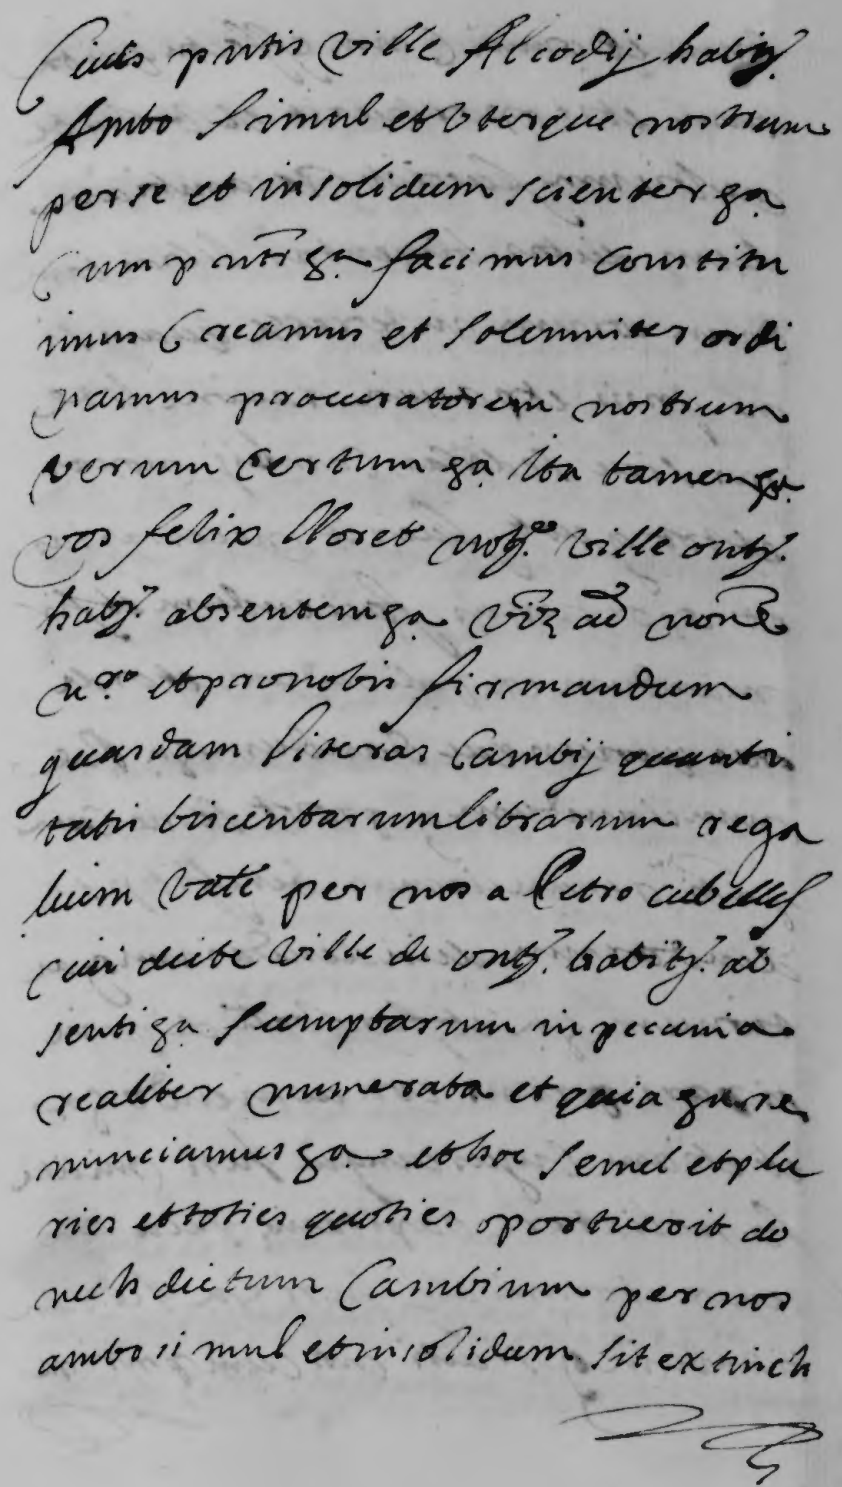 Civis pntis ville Alcodij habitr.
Ambo simul et uterque nostrum
per se et in solidum scienter ga
Cum pnti ga facimus constitu
imus Creamus et solemniter ordi
namus procuratorem nostrum
verum Certum ga ita tamen ga
vos felix lloret notm. ville ontt.
habr. absentem ga vīz ad nomē
nro. et pro nobis firmandum
quasdam literas Cambij quanti
tatis biscentarum librarum rega
lium Valē per nos a Petro cubells
Civi dicte ville de ontt. habitr. ab
senti ga sumptarum in pecunia
realiter numerata et quia ga re
nunciamus ga et hoc semel et plu
ries et toties quoties oportuerit do
nech dictum Cambium per nos
ambo simul et in solidum sit extinch